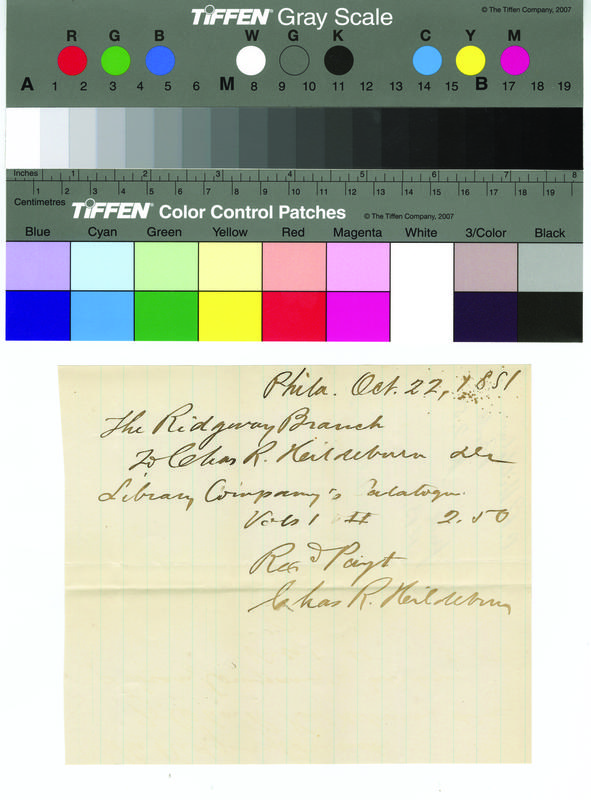 TIFFEN® Gray Scale
© The Tiffen Company, 2007
R G B W G K C Y M
A 1 2 3 4 5 6 M 8 9 10 11 12 13 14 15 B 17 18 19
Inches 1 2 3 4 5 6 7 8
Centimetres 1 2 3 4 5 6 7 8 9 10 11 12 13 14 15 16 17 18 19
TIFFEN® Color Control Patches
© The Tiffen Company, 2007
Blue Cyan Green Yellow Red Magenta White 3/Color Black
Phila. Oct. 22, 1881
The Ridgway Branch
To Chas R. Hildeburn
Library Company's Catalogue
Vols I II 2.50
Recd Payt
Chas R. Hildeburn